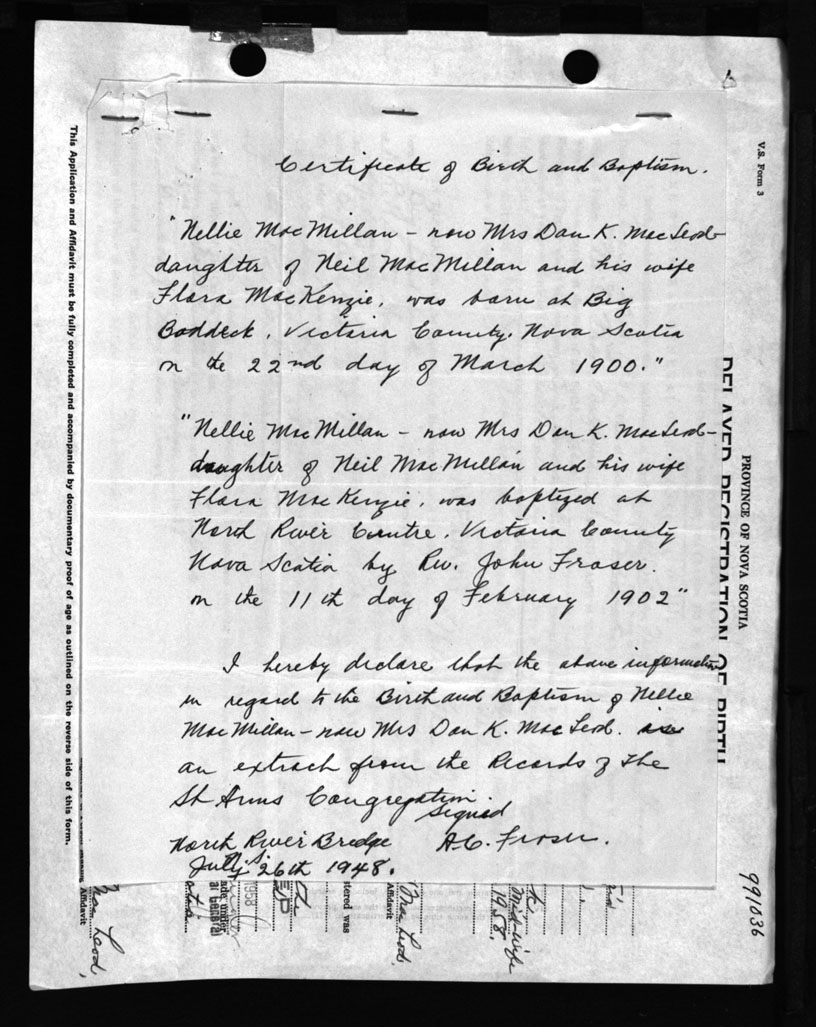 Certificate of Birth and Baptism.
"Nellie MacMillan – now Mrs Dan K. MacLeod –
daughter of Neil MacMillan and his wife
Flora MacKenzie, was born at Big
Baddeck, Victoria County, Nova Scotia
on the 22nd day of March 1900."
"Nellie MacMillan – now Mrs Dan K. MacLeod –
daughter of Neil MacMillan and his wife
Flora MacKenzie, was baptized at
North River Centre, Victoria County
Nova Scotia by Rev. John Fraser.
on the 11th day of February 1902"
I hereby declare that the above information
in regard to the Birth and Baptism of Nellie
MacMillan – now Mrs Dan K. MacLeod. is
an extract from the Records of the
St Anns Congregation
Signed
North River Bridge A.C. Fraser.
July 26th 1948.
This Application and Affidavit must be fully completed and accompanied by documentary proof of age as outlined on the reverse side of this form.
V.S. Form 3
PROVINCE OF NOVA SCOTIA
DELAYED REGISTRATION OF BIRTH
991036
Mac Leod,
Affidavit
1958
stered was
Affidavit
Mac Leod,
Mid-wife
1958.